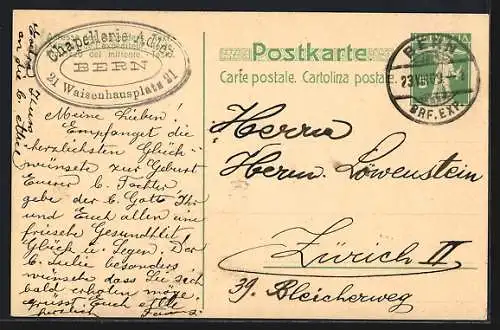 Chapellerie Adler
BERN
21 Waisenhausplatz 21
Postkarte
Carte postale. Cartolina postale.
BERN
BRF. EXP.
Meine Lieben!
Empfanget die
herzlichsten Glück
wünsche zur Geburt
Eurer l. Tochter
gebe der l. Gott Ihr
und Euch allen eine
frische Gesundheit
Glück u. Segen. Der
l. Julie besonders
wünsche dass Sie sich
bald erholen möge
grüsst Euch alle
herzlich
an die l.
Herrn
Herm. Löwenstein
Zürich II
39. Bleicherweg